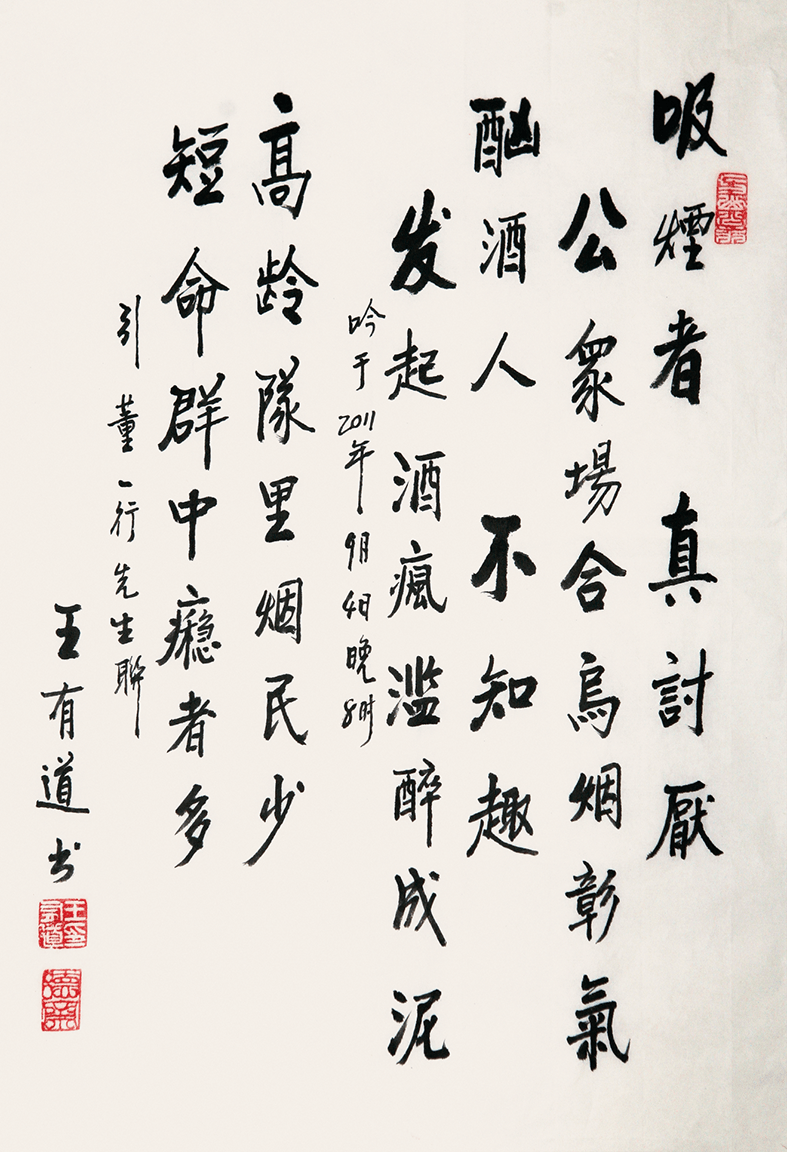 吸煙者真討厭
公衆場合烏烟彰氣
酗酒人不知趣
发起酒瘋滥醉成泥
吟于2011年9月4日晚8时
高龄隊里烟民少
短命群中癮者多
引董一行先生聯
王有道书